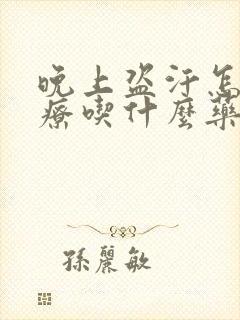 晚上盗汗怎
療喫什麼藥
孫麗敏